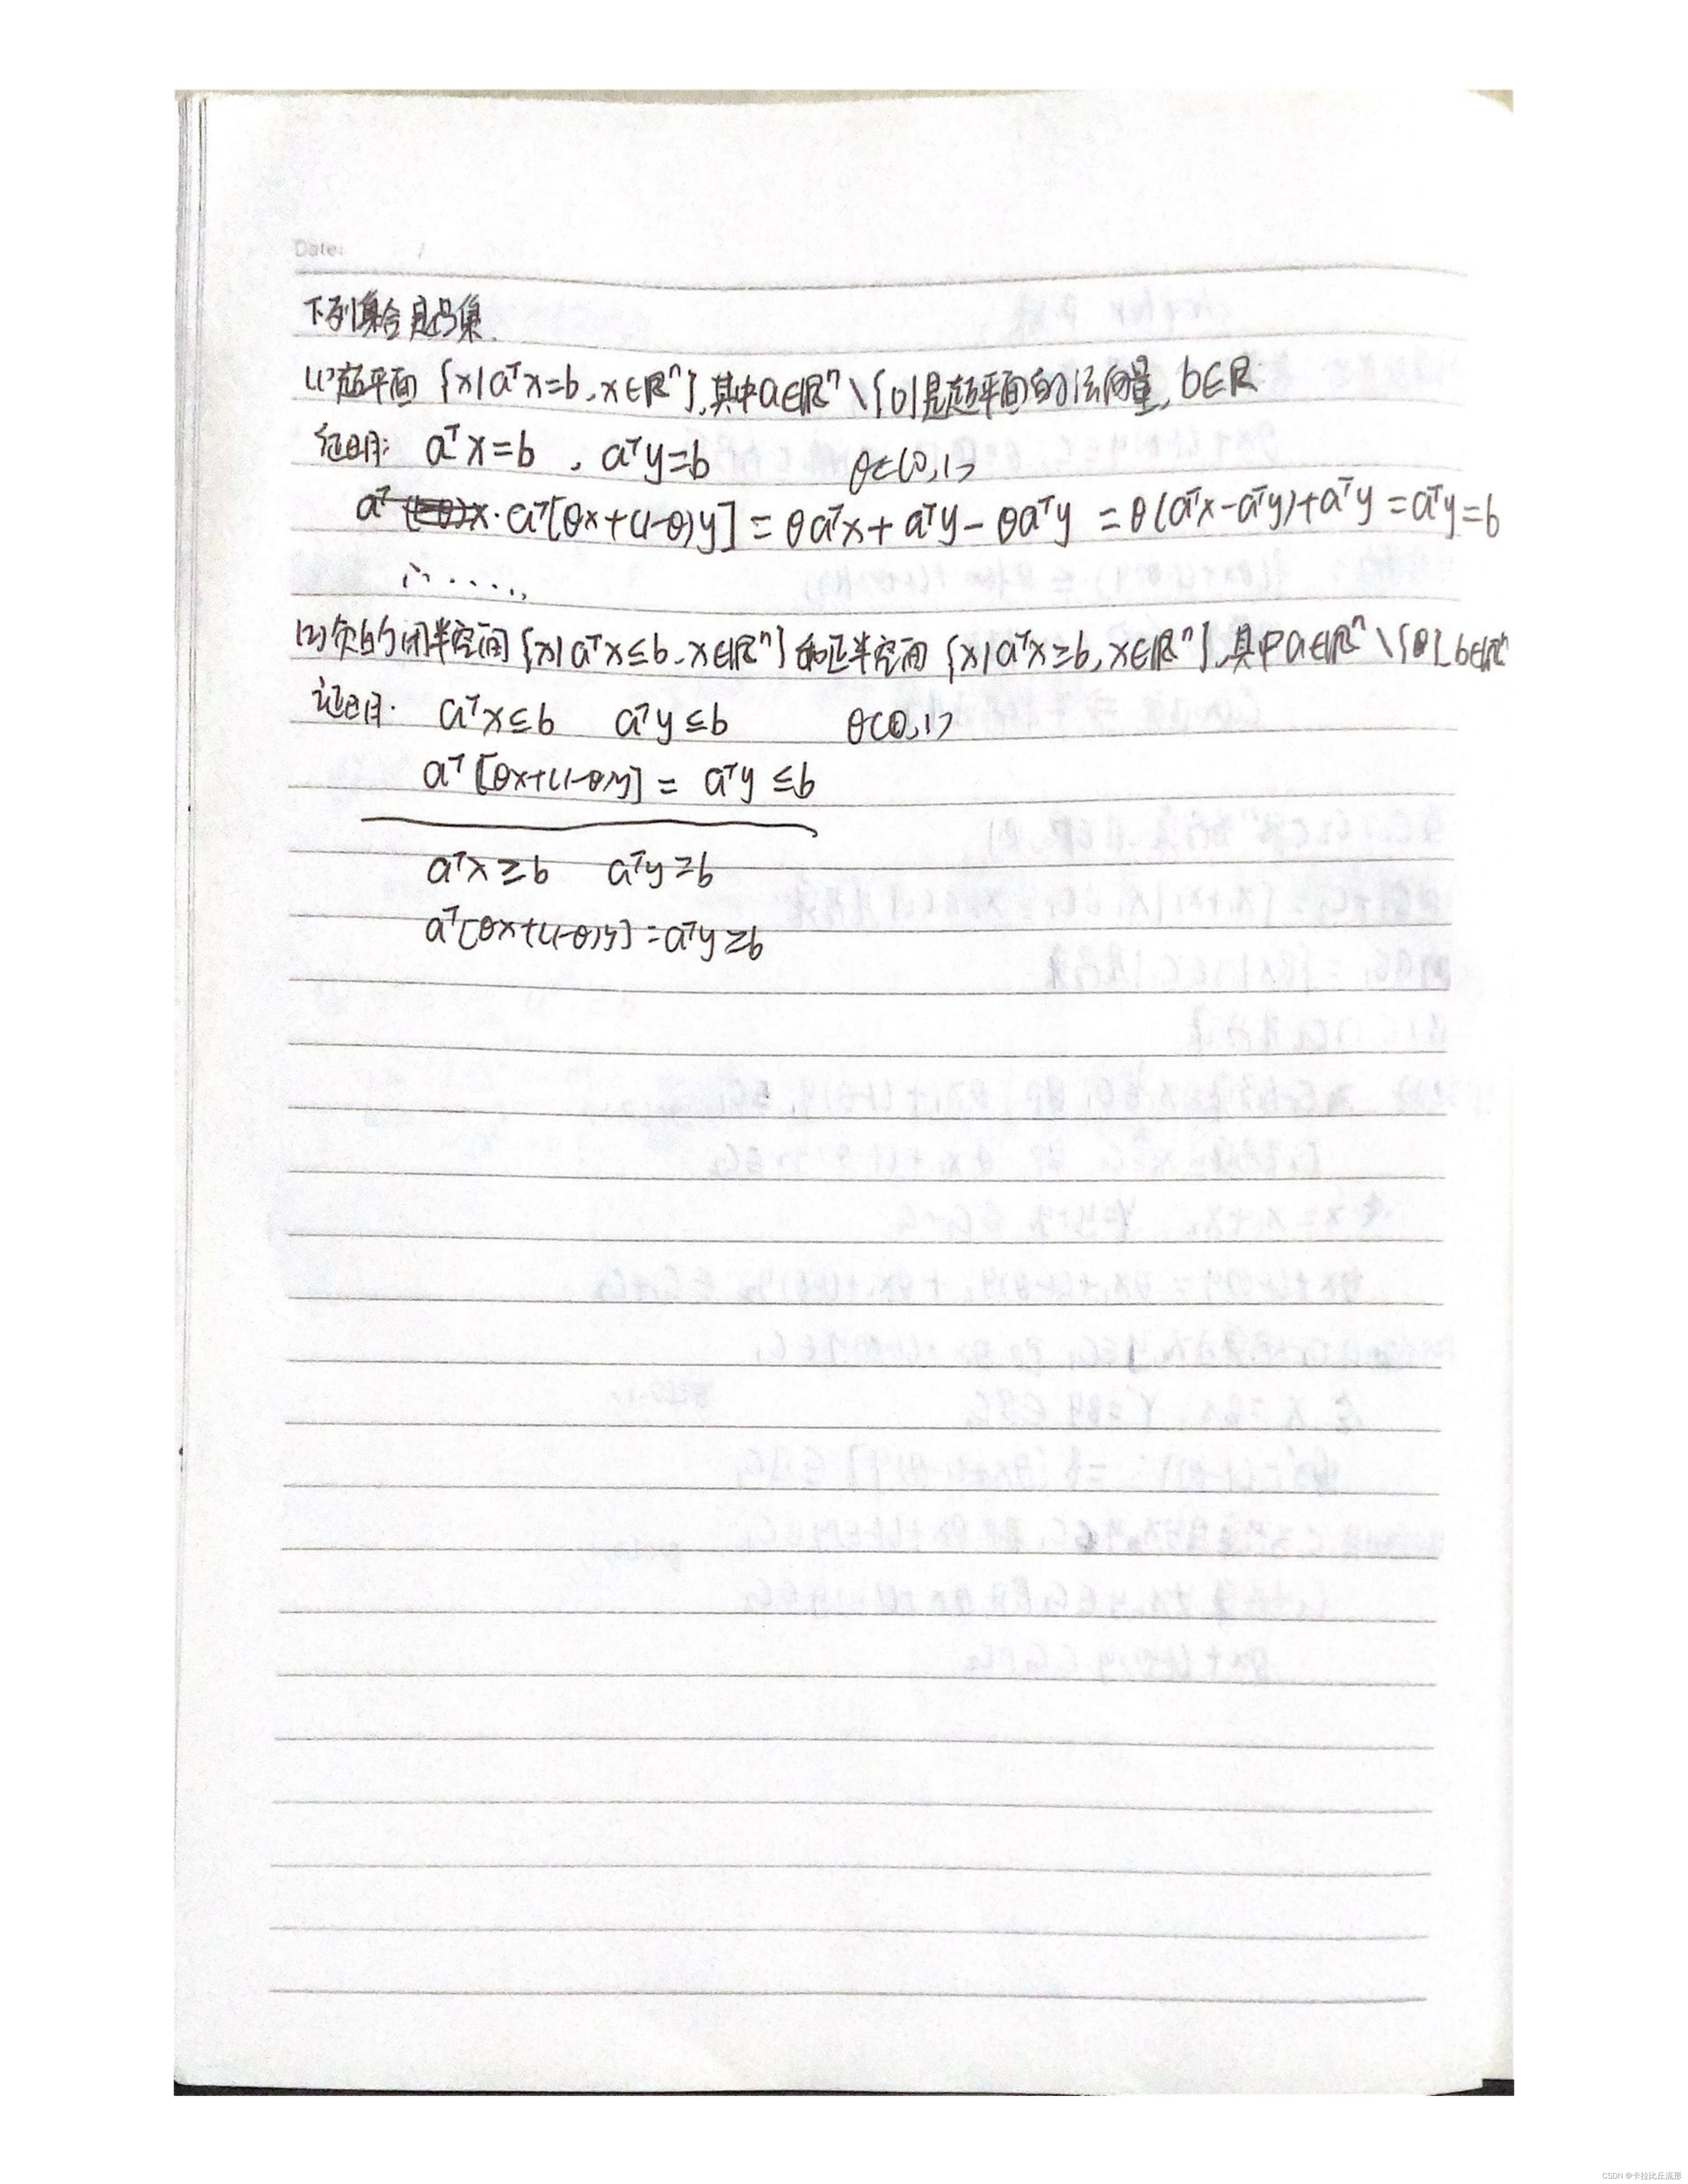 Date: /
下列集合是凸集.
(1)超平面 {x|aᵀx=b, x∈ℝⁿ}, 其中a∈ℝⁿ\{0}是超平面的法向量, b∈ℝ
证明: aᵀx=b , aᵀy=b θ∈(0,1)
aᵀ · aᵀ[θx+(1-θ)y] = θaᵀx+aᵀy-θaᵀy = θ(aᵀx-aᵀy)+aᵀy=aᵀy=b
∴ .....
(2) 的闭半空间{x|aᵀx≤b, x∈ℝⁿ}和正半空间{x|aᵀx≥b, x∈ℝⁿ}, 其中a∈ℝⁿ\{0} b∈ℝⁿ
证明. aᵀx≤b aᵀy≤b θ(0,1)
aᵀ[θx+(1-θ)y] = aᵀy≤b
aᵀx≥b aᵀy≥b
aᵀ[θx+(1-θ)y]=aᵀy≥b
CSDN @卡拉比丘流形